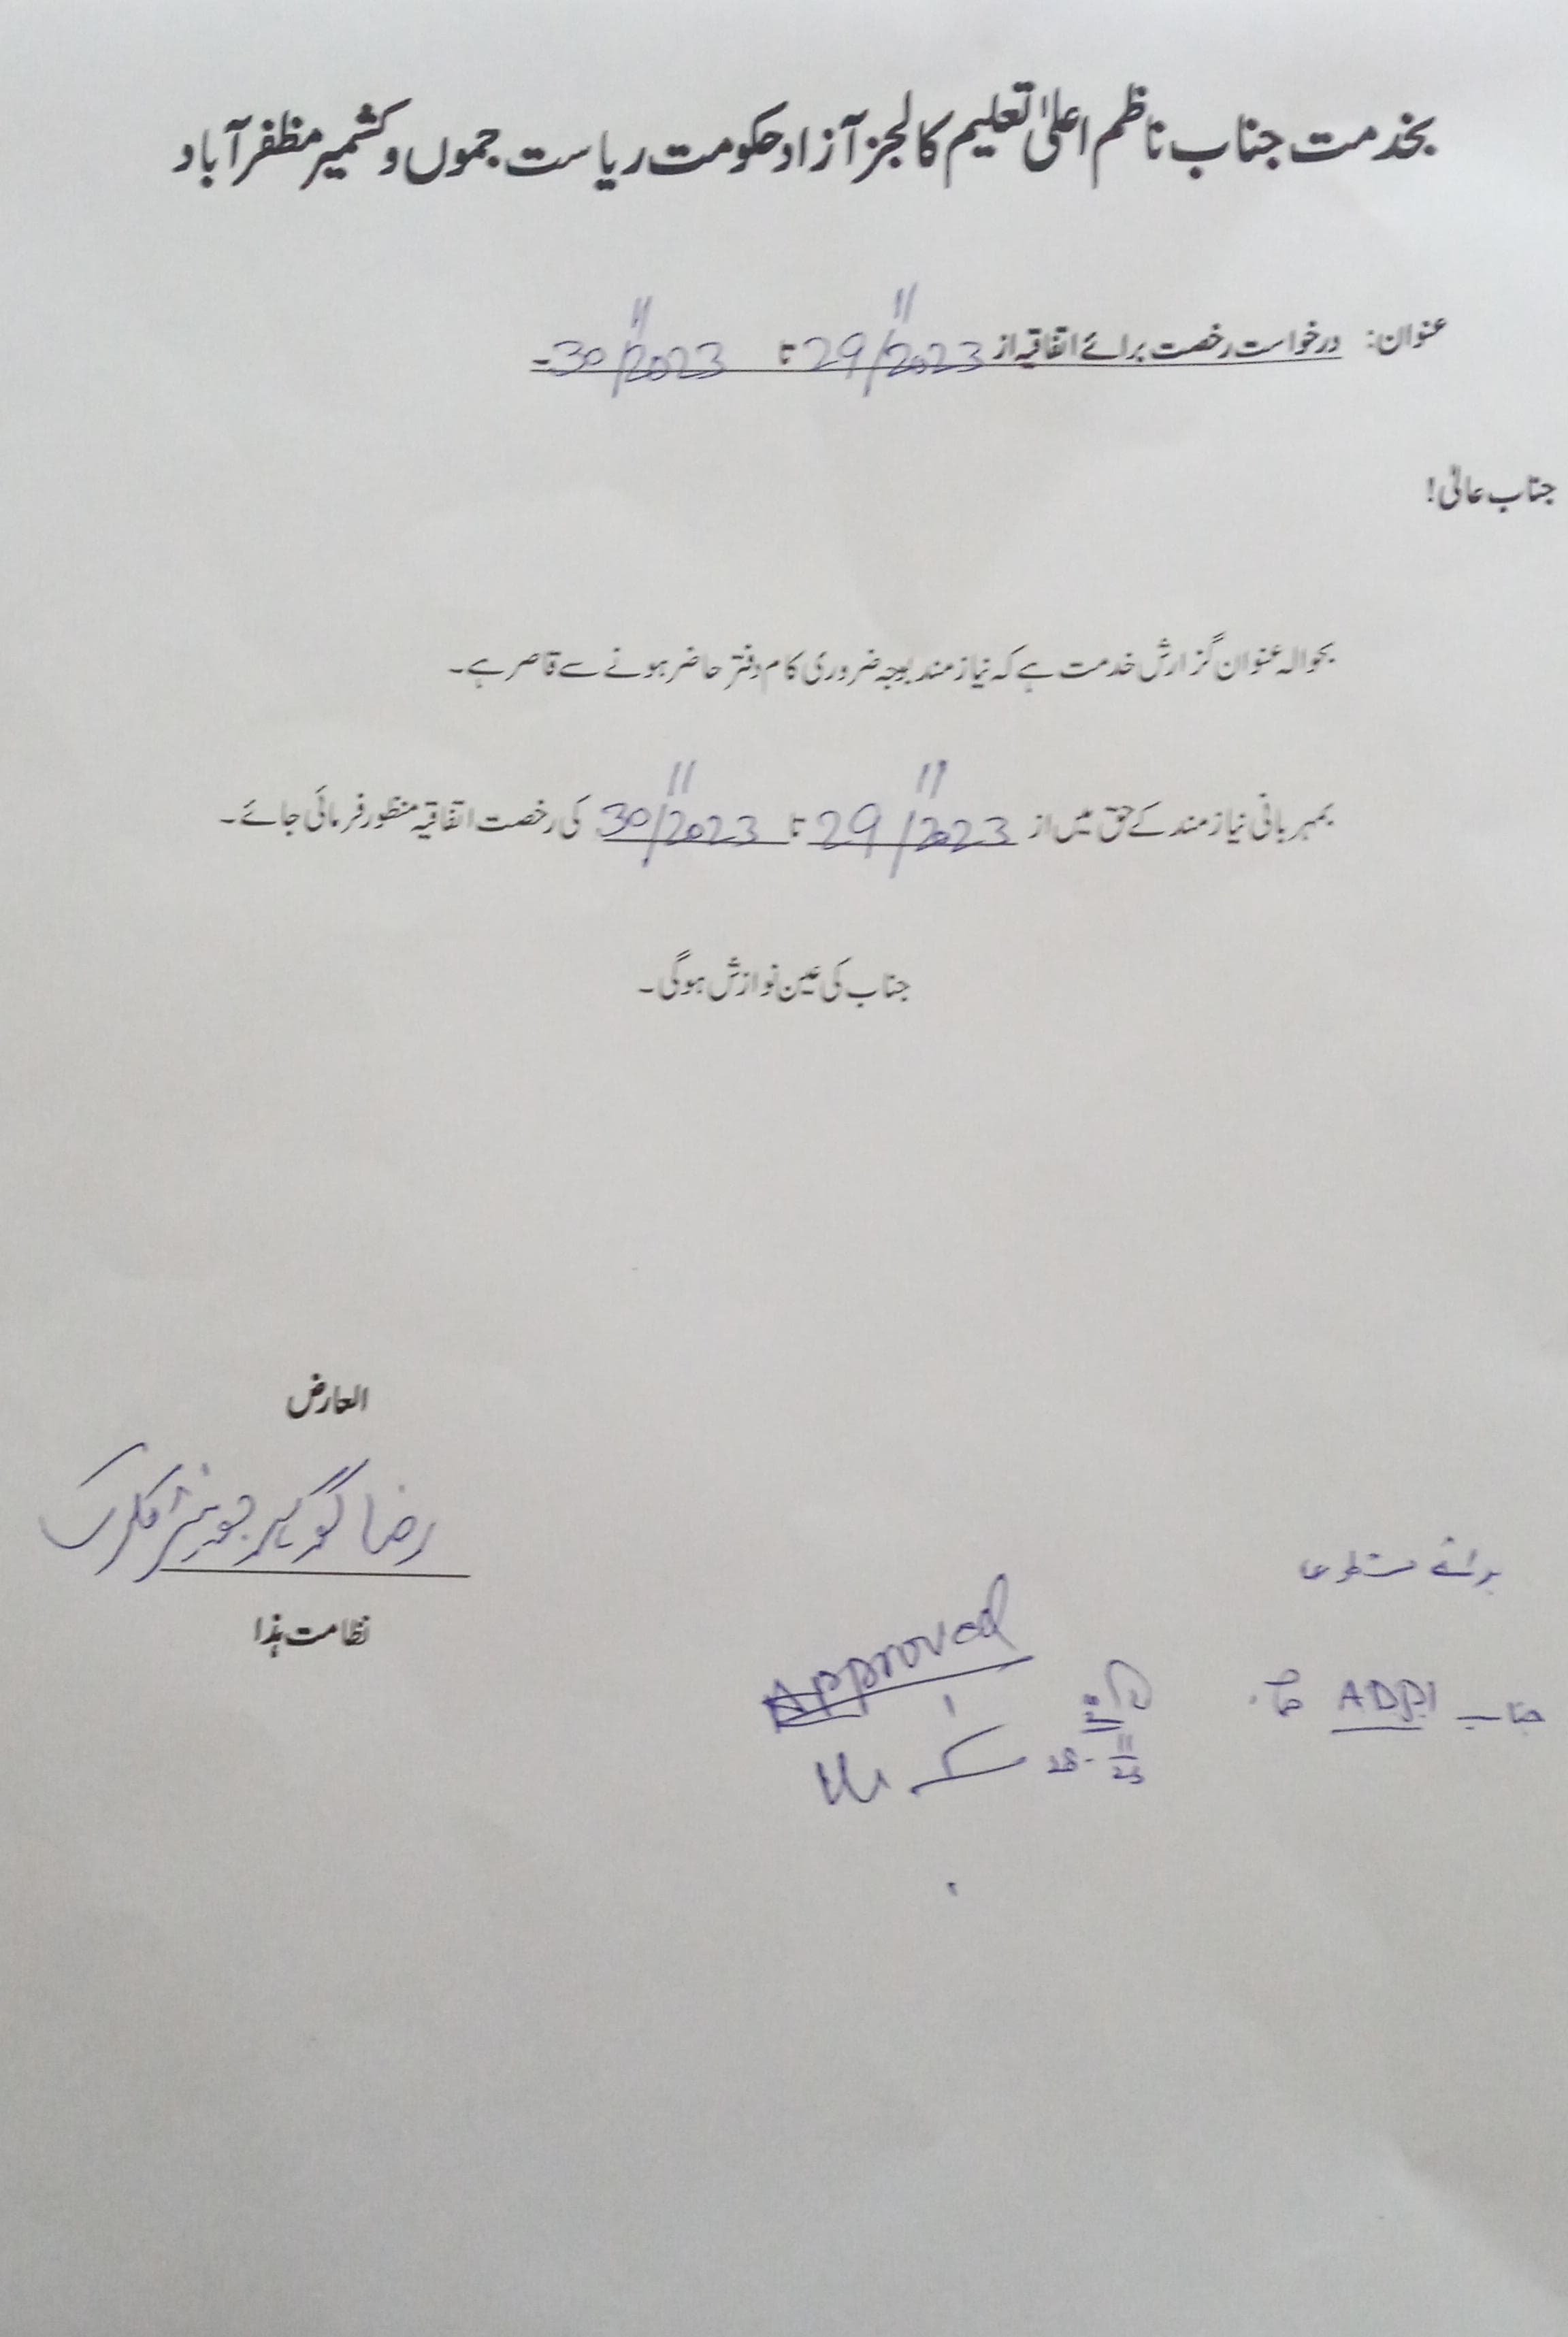 بخدمت جناب ناظم اعلیٰ تعلیم کالجز آزاد حکومت ریاست جموں و کشمیر مظفر آباد
عنوان: درخواست رخصت برائے اتفاقیہ از 29/11/2023 تا 30/11/2023۔
جناب عالی!
بحوالہ عنوان گزارش خدمت ہے کہ نیاز مند بوجہ ضروری کام دفتر حاضر ہونے سے قاصر ہے۔
بمہربانی نیاز مند کے حق میں از 29/11/2023 تا 30/11/2023 کی رخصت اتفاقیہ منظور فرمائی جائے۔
جناب کی عین نوازش ہوگی۔
العارض
رضا گوہر جونیئر کلرک
نظامت ہذا
برائے منظوری
جناب ADPI
Approved
28-11/23